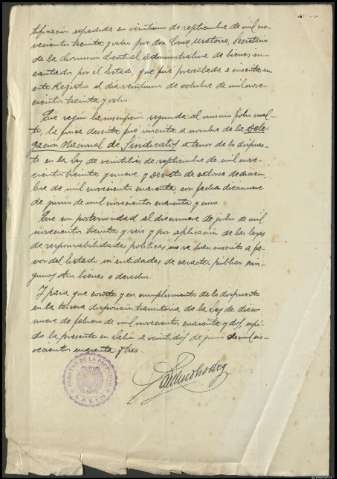 tificación expedida en veintiuno de septiembre de mil no-
vecientos treinta y ocho por don Cruz Usatorre, Secretario
de la Comisión Central administrativa de bienes in-
cautados por el Estado, que fué presentada e inscrita en
este Registro el día veintiuno de octubre de mil nove-
cientos treinta y ocho.
Que según la inscripción segunda al mismo folio
la finca descrita fue inscrita a nombre de la Dele-
gación Nacional de Sindicatos a tenor de lo dispues-
to en la Ley de veintitrés de septiembre de mil nove-
cientos treinta y nueve y de
de mil novecientos cuarenta, con fecha diecinueve
de junio de mil novecientos cuarenta y uno.
Que con posterioridad al diecinueve de julio de mil
novecientos treinta y seis y por aplicación de las leyes
de responsabilidades políticas, no se han inscrito a fa-
vor del Estado ni entidades de carácter público nin-
gunos otros bienes o derechos.
Y para que conste y en cumplimiento de lo dispuesto
en la disposición transitoria de la Ley de dieci-
nueve de febrero de mil novecientos cuarenta y dos, expi-
do la presente en Lalín a veintidós de junio de mil no-
vecientos cuarenta y tres.
REGISTRO DE LA PROPIEDAD
LALIN